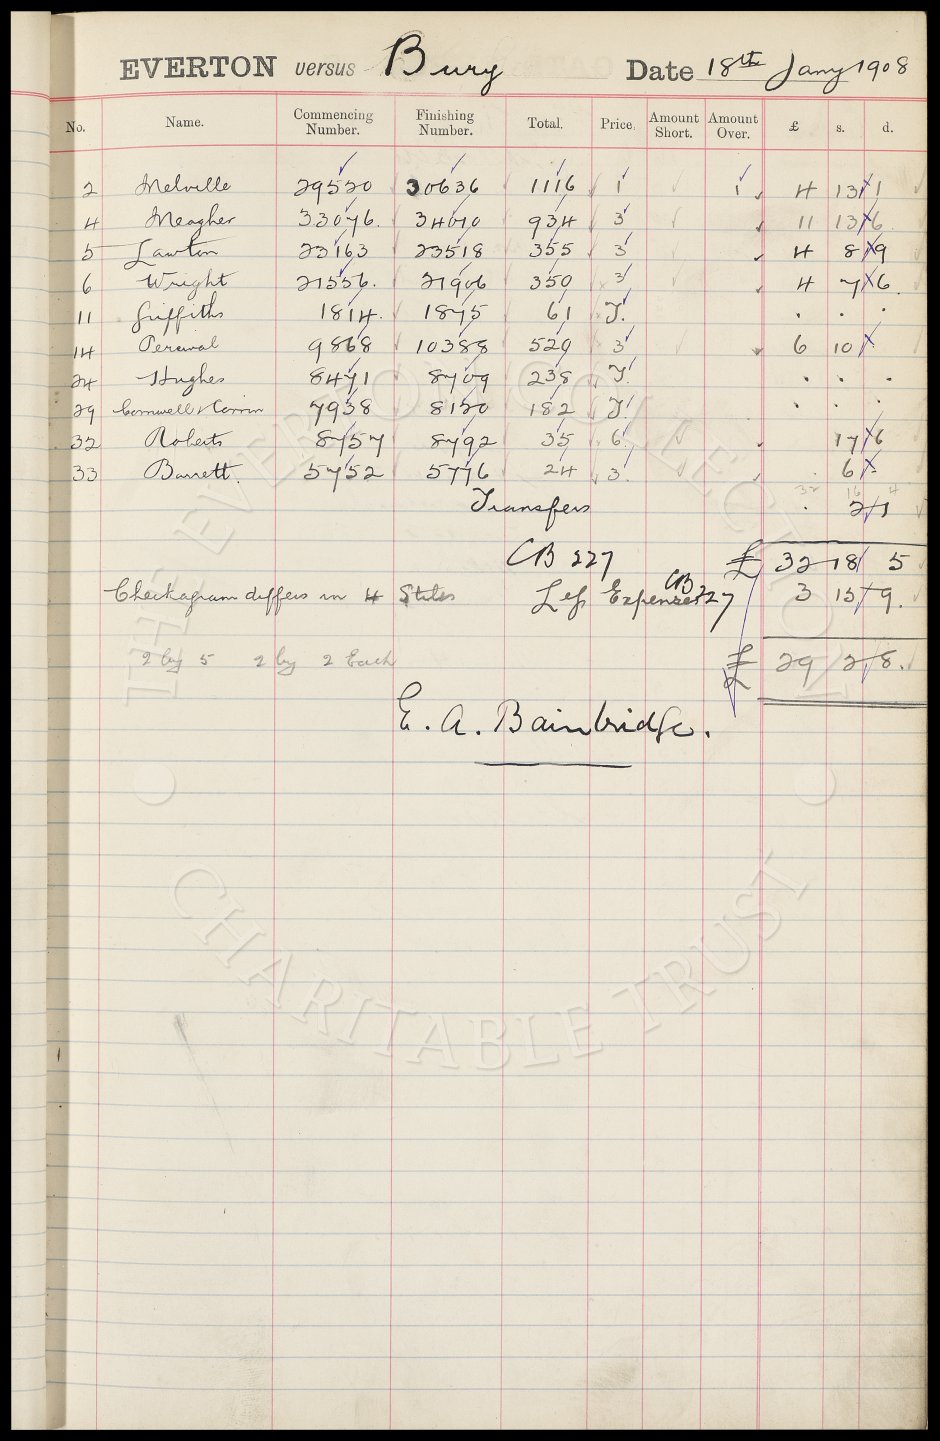 EVERTON versus Bury Date 18th Jany 1908
No. Name. Commencing Number. Finishing Number. Total. Price. Amount Short. Amount Over. £ s. d.
2 Melville 29520 30636 1116 1 1 4 13 1
4 Meagher 33076 34010 934 3 11 13 6
5 Lawton 23163 23518 355 3 4 8 9
6 Wright 21556 21906 350 3 4 7 6
11 Griffiths 1814 1875 61 T.
14 Percival 9868 10388 520 3 6 10 -
24 Hughes 8471 8709 238 T.
29 Cornwell & 7938 8120 182 T.
32 Roberts 8757 8792 35 6 17 6
33 Barrett 5752 5776 24 3 6 -
32 16 4
Transfers 2 1
CB 227 £ 32 18 5
Checkagram differs in 4 Stiles Less Expenses CB 227 3 15 9
2 by 5 2 by 2 Each £ 29 2 8
E. A. Bainbridge.
THE EVERTON COLLECTION
CHARITABLE TRUST